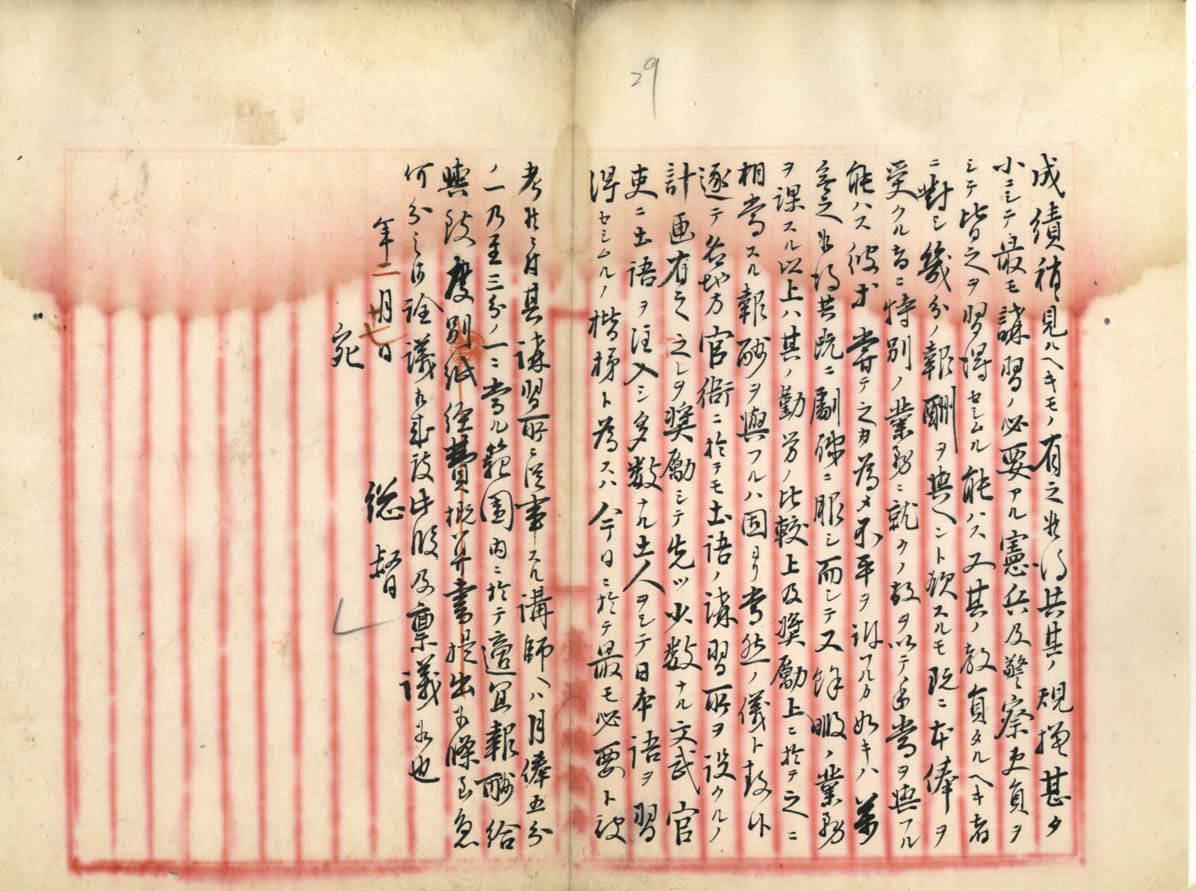 29
成績稍見ルヘキモノ有之候得共其ノ規模甚タ
小ニシテ最モ講習ノ必要アル憲兵及警察吏員ヲ
シテ皆之ヲ習得セシムル能ハス又其ノ教員タルヘキ者
ニ對シ幾分ノ報酬ヲ與ヘント欲スルモ既ニ本俸ヲ
受クル者ニ特別ノ業務ニ就クノ故ヲ以テ手當ヲ與フル
能ハス彼等嘗テ之カ為メ不平ヲ訴フルカ如キハ萬
無之候得共既ニ劇務ニ服シ而シテ又餘暇ノ業務
ヲ課スル以上ハ其ノ勤労ノ比較上及奨勵上ニ於テ之ニ
相當スル報酬ヲ與フルハ固ヨリ當然ノ儀ト存候
逐テ各地方官衙ニ於テモ土語ノ講習所ヲ設クルノ
計画有之之レヲ奨勵シテ先ツ少数ナル文武官
吏ニ土語ヲ注入シ多数ナル土人ヲシテ日本語ヲ習
得セシムルノ楷梯ト為スハ今日ニ於テ最モ必要ト被
考候ニ付其講習所ニ従事スル講師ヘハ月俸五分
ノ一乃至三分ノ一ニ當ル範囲内ニ於テ適宜報酬給
與致度別紙経費概算書提出候條至急
何分之御詮議相成度此段及稟議候也
年二月十七日
総督
宛